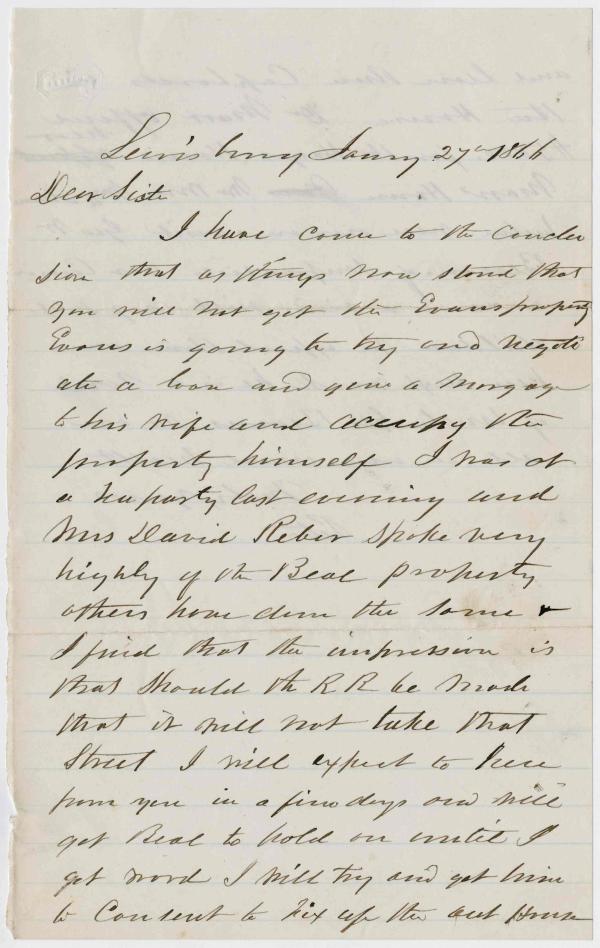 Lewisburg Jany 27th 1866
Dear Sister
I have come to the conclu
sion that as things now stand that
you will not get the Evans property
Evans is going to try and negoti
ate a loan and give a Morgage
to his wife and occupy the
property himself I was at
a teaparty last evening and
Mrs David Reber spoke very
highly of the Beal property
others have done the same &
I find that the impression is
that should the R R be made
that it will not take that
Street I will expect to here
from you in a few days and will
get Beal to hold on until I
get word I will try and get him
to Consent to Fix up the out House